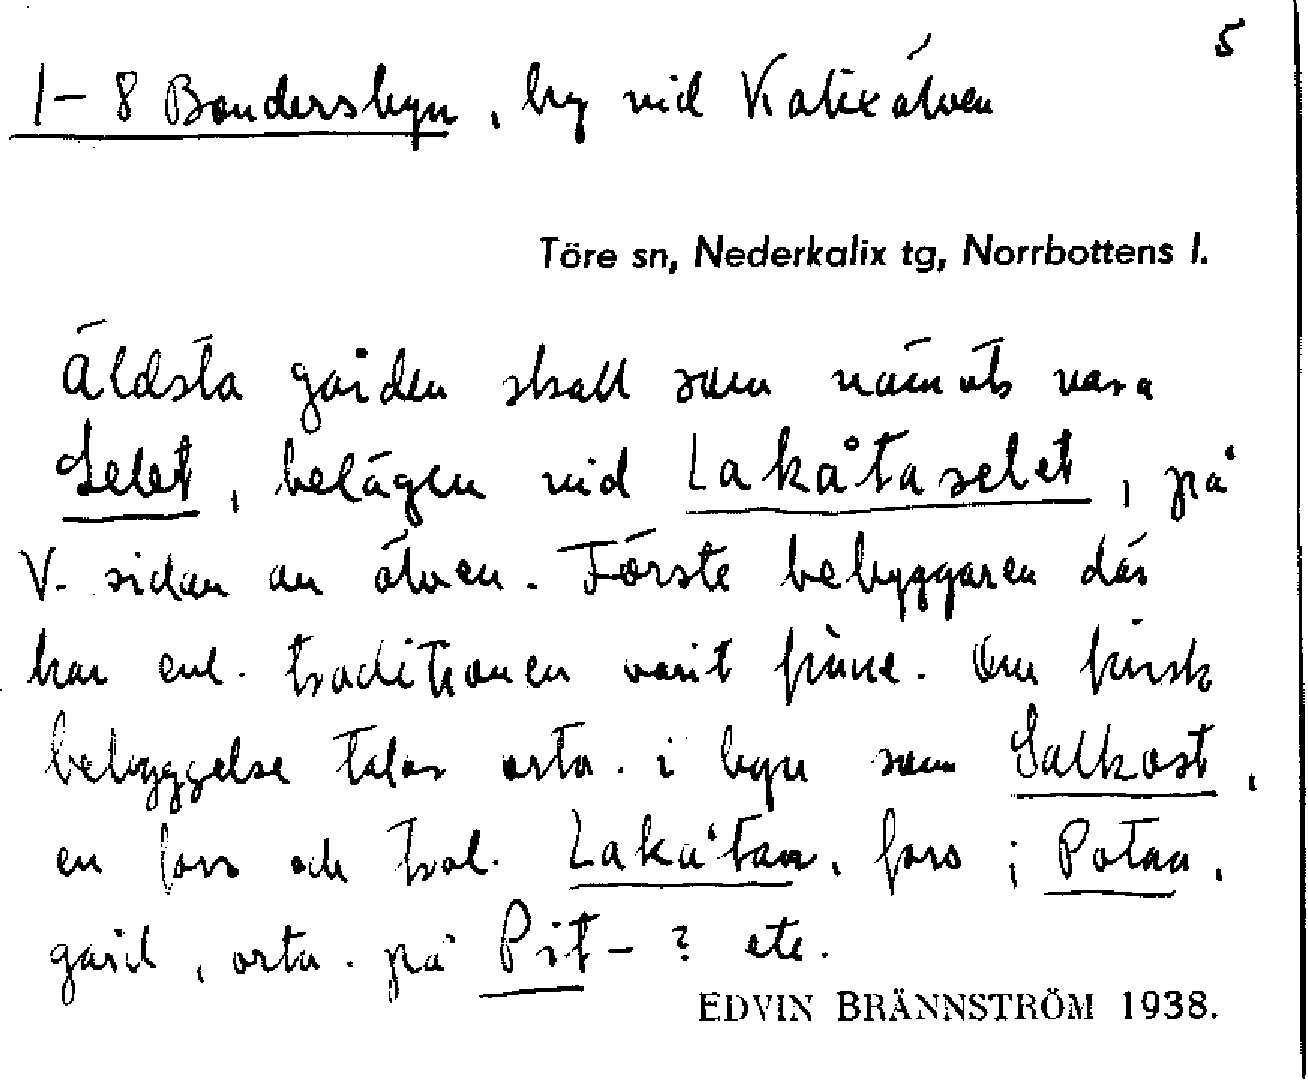 5
1–8 Bondersbyn, by vid Kalixälven
Töre sn, Nederkalix tg, Norrbottens l.
Äldsta gården skall som nämnts vara
Selet, belägen vid Lakåtaselet, på
V. sidan av älven. Förste bebyggaren där
har enl. traditionen varit finne. Om finsk
bebyggelse talar ortn. i byn som Salkost,
en fors och trol. Lakåtan, fors ; Potan,
gård, ortn. på Pit- ? etc.
EDVIN BRÄNNSTRÖM 1938.